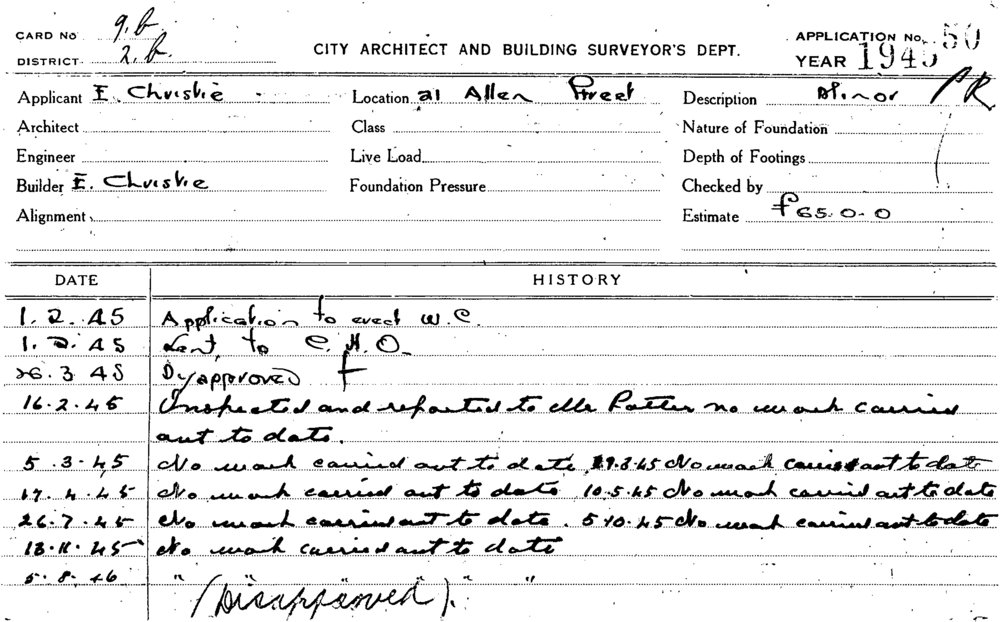 CARD No 9.b
DISTRICT 2.b.
CITY ARCHITECT AND BUILDING SURVEYOR'S DEPT.
APPLICATION No. 50
YEAR 1945
Applicant E. Christie Location 21 Allen Street Description Minor
Architect Class Nature of Foundation
Engineer Live Load Depth of Footings
Builder E. Christie Foundation Pressure Checked by
Alignment Estimate £65.0.0
DATE HISTORY
1.2.45 Application to erect W.C.
1.2.45 Sent to C.H.O.
26.3.45 Disapproved
16.2.45 Inspected and reported to Mr Potter no work carried
out to date.
5.3.45 No work carried out to date 19.3.45 No work carried out to date
17.4.45 No work carried out to date 10.5.45 No work carried out to date
26.7.45 No work carried out to date. 5.10.45 No work carried out to date
13.11.45 No work carried out to date
5.8.46 " " " " " "
(Disapproved).